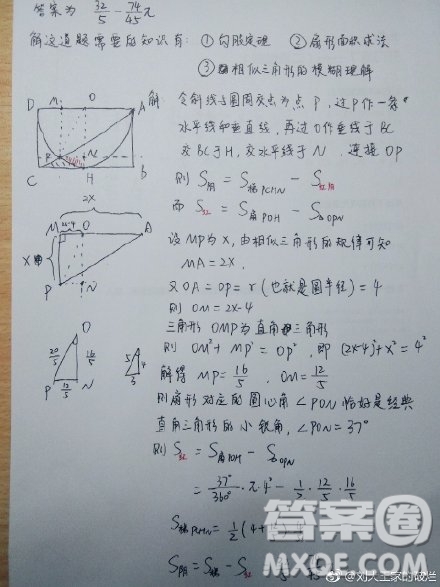 答案为 32/5 - 74/45 π
解这道题需要的知识有: ①勾股定理 ②扇形面积求法
③相似三角形的模糊理解
解: 令斜线与圆周交点为点 P, 过P作一条
水平线和垂直线, 再过O作垂线于BC
交BC于H, 交水平线于N, 连接OP
则 S阴 = S梯PCHN - S红
而 S红 = S扇POH - S△OPN
设MP为X, 由相似三角形的规律可知
MA = 2X,
又OA = OP = r (也就是圆半径) = 4
则 OM = 2X-4
三角形 OMP为直角三角形
则 OM² + MP² = OP², 即 (2X-4)² + X² = 4²
解得 MP = 16/5, OM = 12/5
则扇形对应的圆心角∠PON恰好是经典
直角三角形的小锐角, ∠PON = 37°
则 S红 = S扇POH - S△OPN
= 37°/360° · π · 4² - 1/2 · 12/5 · 16/5
S梯PCHN = 1/2 (4+
S阴 = S梯 - S红
D M O A
P N
C H b
2X
2X-4
M O A
X
P N
O
20/5 16/5
P 12/5 N
5 4
3
答案圈
MXQE.COM
@刘人工家的战栏